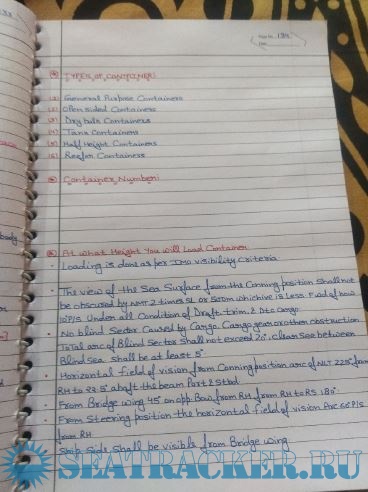 Page No. 133
Date
TYPES OF CONTAINER:
(1) General Purpose Containers
(2) Open sided Containers
(3) Dry bulk Containers
(4) Tank Containers
(5) Half Height Containers
(6) Reefer Containers
Container Number:
At what Height you will Load Container
Loading is done as per IMO visibility criteria
The view of the Sea Surface from the Conning position shall not
be obscured by NMT 2 times SL or 500m whichive is Less Fwd of bow
10°P/S Under all Condition of Draft trim & Dk Cargo
No blind Sector Caused by Cargo, Cargo gear or other obstruction
Total arc of Blind Sector Shall not exceed 20°. Clear See between
Blind Sea shall be at least 5°
Horizontal field of vision from Conning position arc of NLT 225° from
RH to 22.5° abaft the beam Port & Stbd
From Bridge wing 45° on opp. Bow from RH from RH to RS 180°
From Steering position the horizontal field of vision Arc 60°P/S
from RH
Ship side shall be visible from Bridge wing
body
SEATRACKER.RU